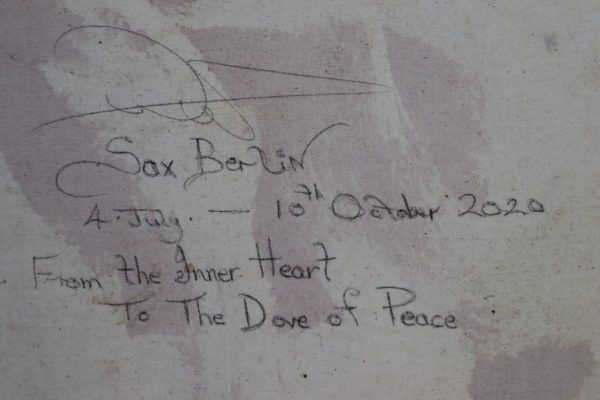 Sax Berlin
4. July. — 10th October 2020
From the Inner Heart
To The Dove of Peace